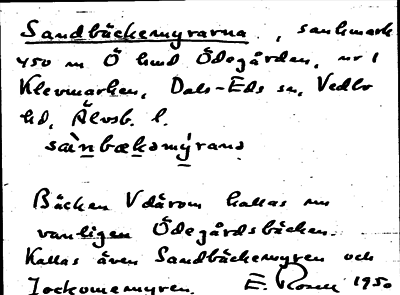 Sandbäckemyrarna, sankmark
450 m Ö hmd Ödegården, nr 1
Klevmarken, Dals-Eds sn, Vedbo
hd, Älvsb. l.
sàn̲bæk̲əmý̲rana
Bäcken V därom kallas nu
vanligen Ödegårdsbäcken.
Kallas även Sandbäckemyren och
E. 1950